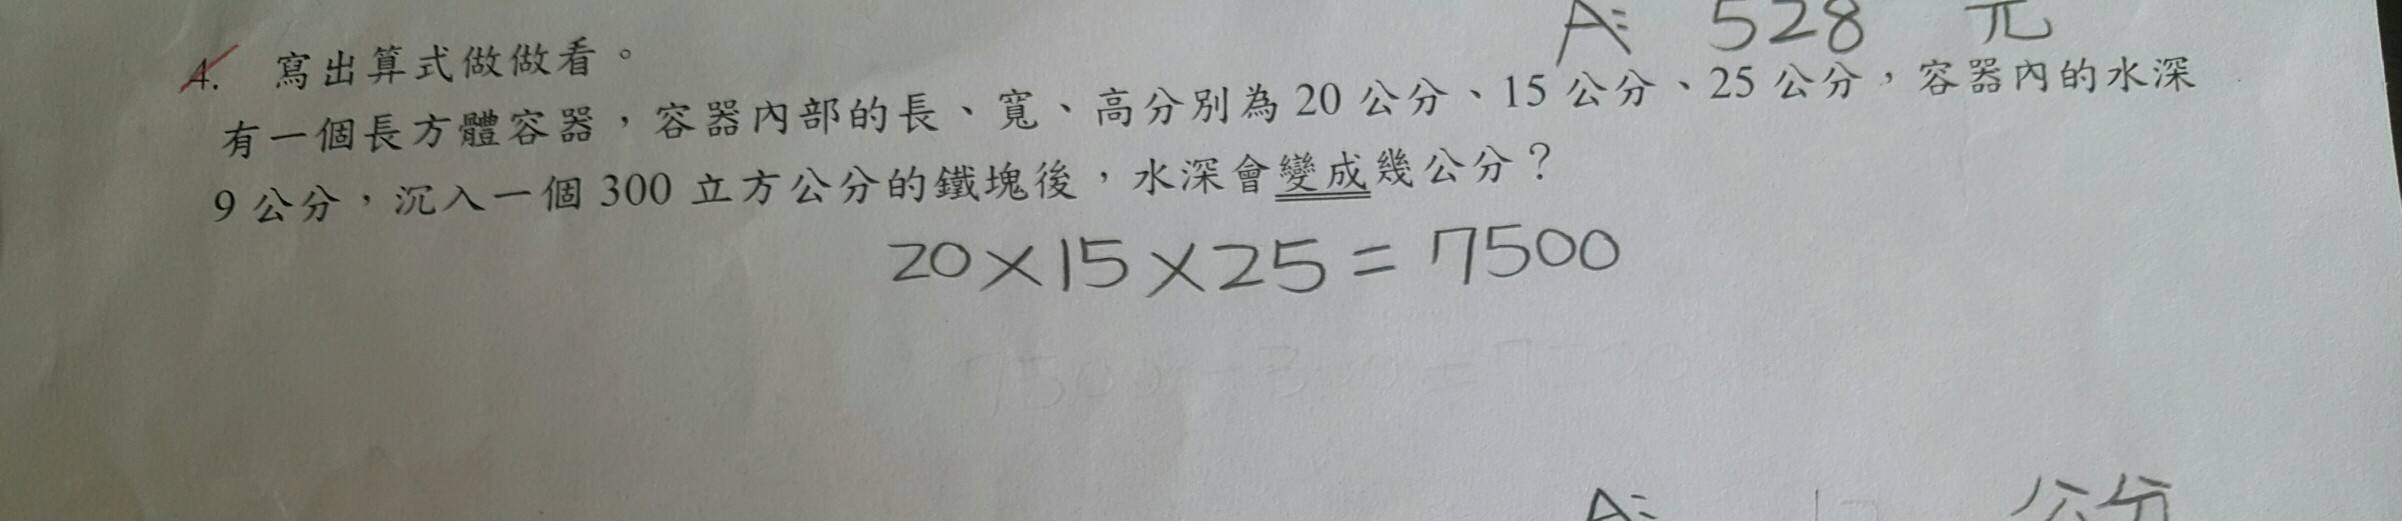 A: 528 元
4. 寫出算式做做看。
有一個長方體容器，容器內部的長、寬、高分別為 20 公分、15 公分、25 公分，容器內的水深
9 公分，沉入一個 300 立方公分的鐵塊後，水深會變成幾公分？
20×15×25=7500
A: 公分